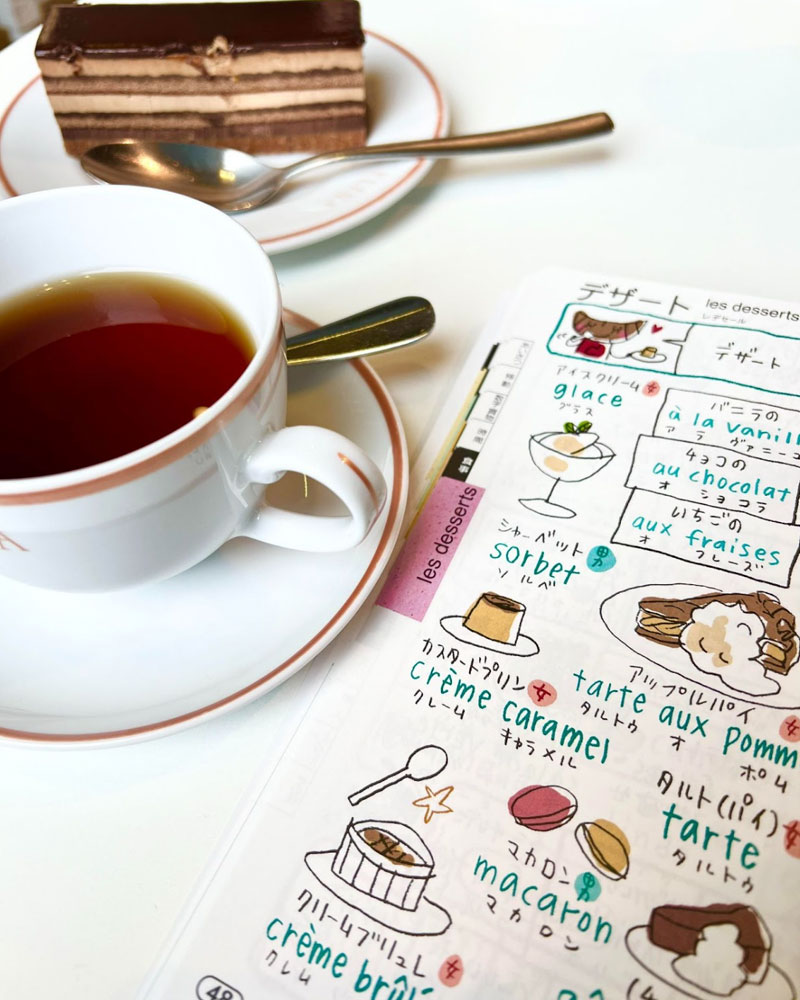 デザート les desserts
レデセール
デザート
アイスクリーム 女
glace
グラス
バニラの
à la vanill
ア ラ ヴァニーユ
チョコの
au chocolat
オ ショコラ
いちごの
aux fraises
オ フレーズ
les desserts
シャーベット 男
sorbet
ソルベ
カスタードプリン 女
crème caramel
クレーム キャラメル
アップルパイ 女
tarte aux pomm
タルトゥ オ ポム
タルト(パイ) 女
tarte
タルトゥ
マカロン 男
macaron
マカロン
クリームブリュレ 女
crème brûl
クレム
48